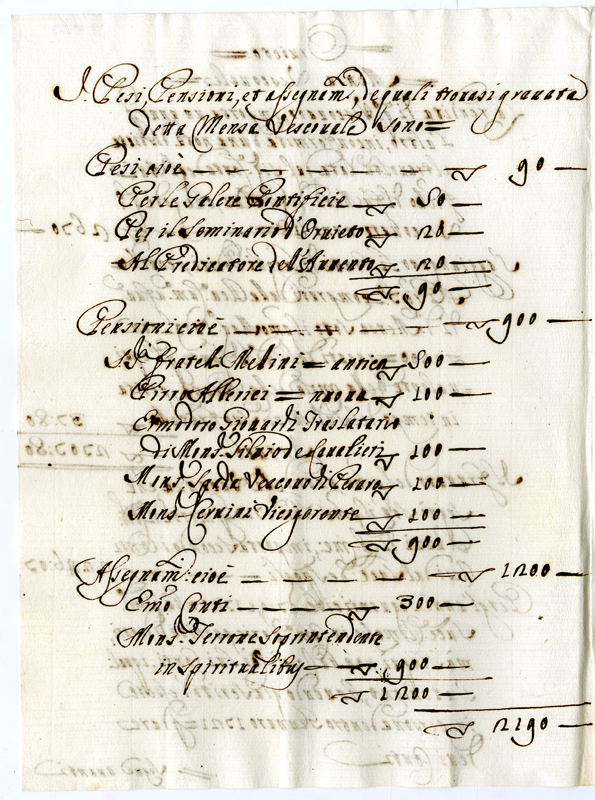 I Pesi, Pensioni, et assegnam.ti, de quali trovasi gravata
detta Mensa Vescovale sono =
Pesi cioè — — — — 90 —
Per le Galere Pontificie — 50 —
Per il Seminario d'Orvieto — 20 —
Al Predicatore dell'Avvento 20 —
90 —
Pensioni cioè — — — — 900 —
fratel. Melini = antica 500 —
Pirro Alberici = nuova 100 —
Ermodoro Traslatario
di Mons.r Silvio de Cavalieri 100 —
Mons.r Spada Vescovo di Pesaro 100 —
Mons.r Cervini Vicegerente 100 —
900 —
Assegnam.ti cioè — — — — 1200 —
Em.o Conti — — — 300 —
Mons.r Terroni Soprintendente
in Spiritualibus — 900 —
1200 —
2190 —